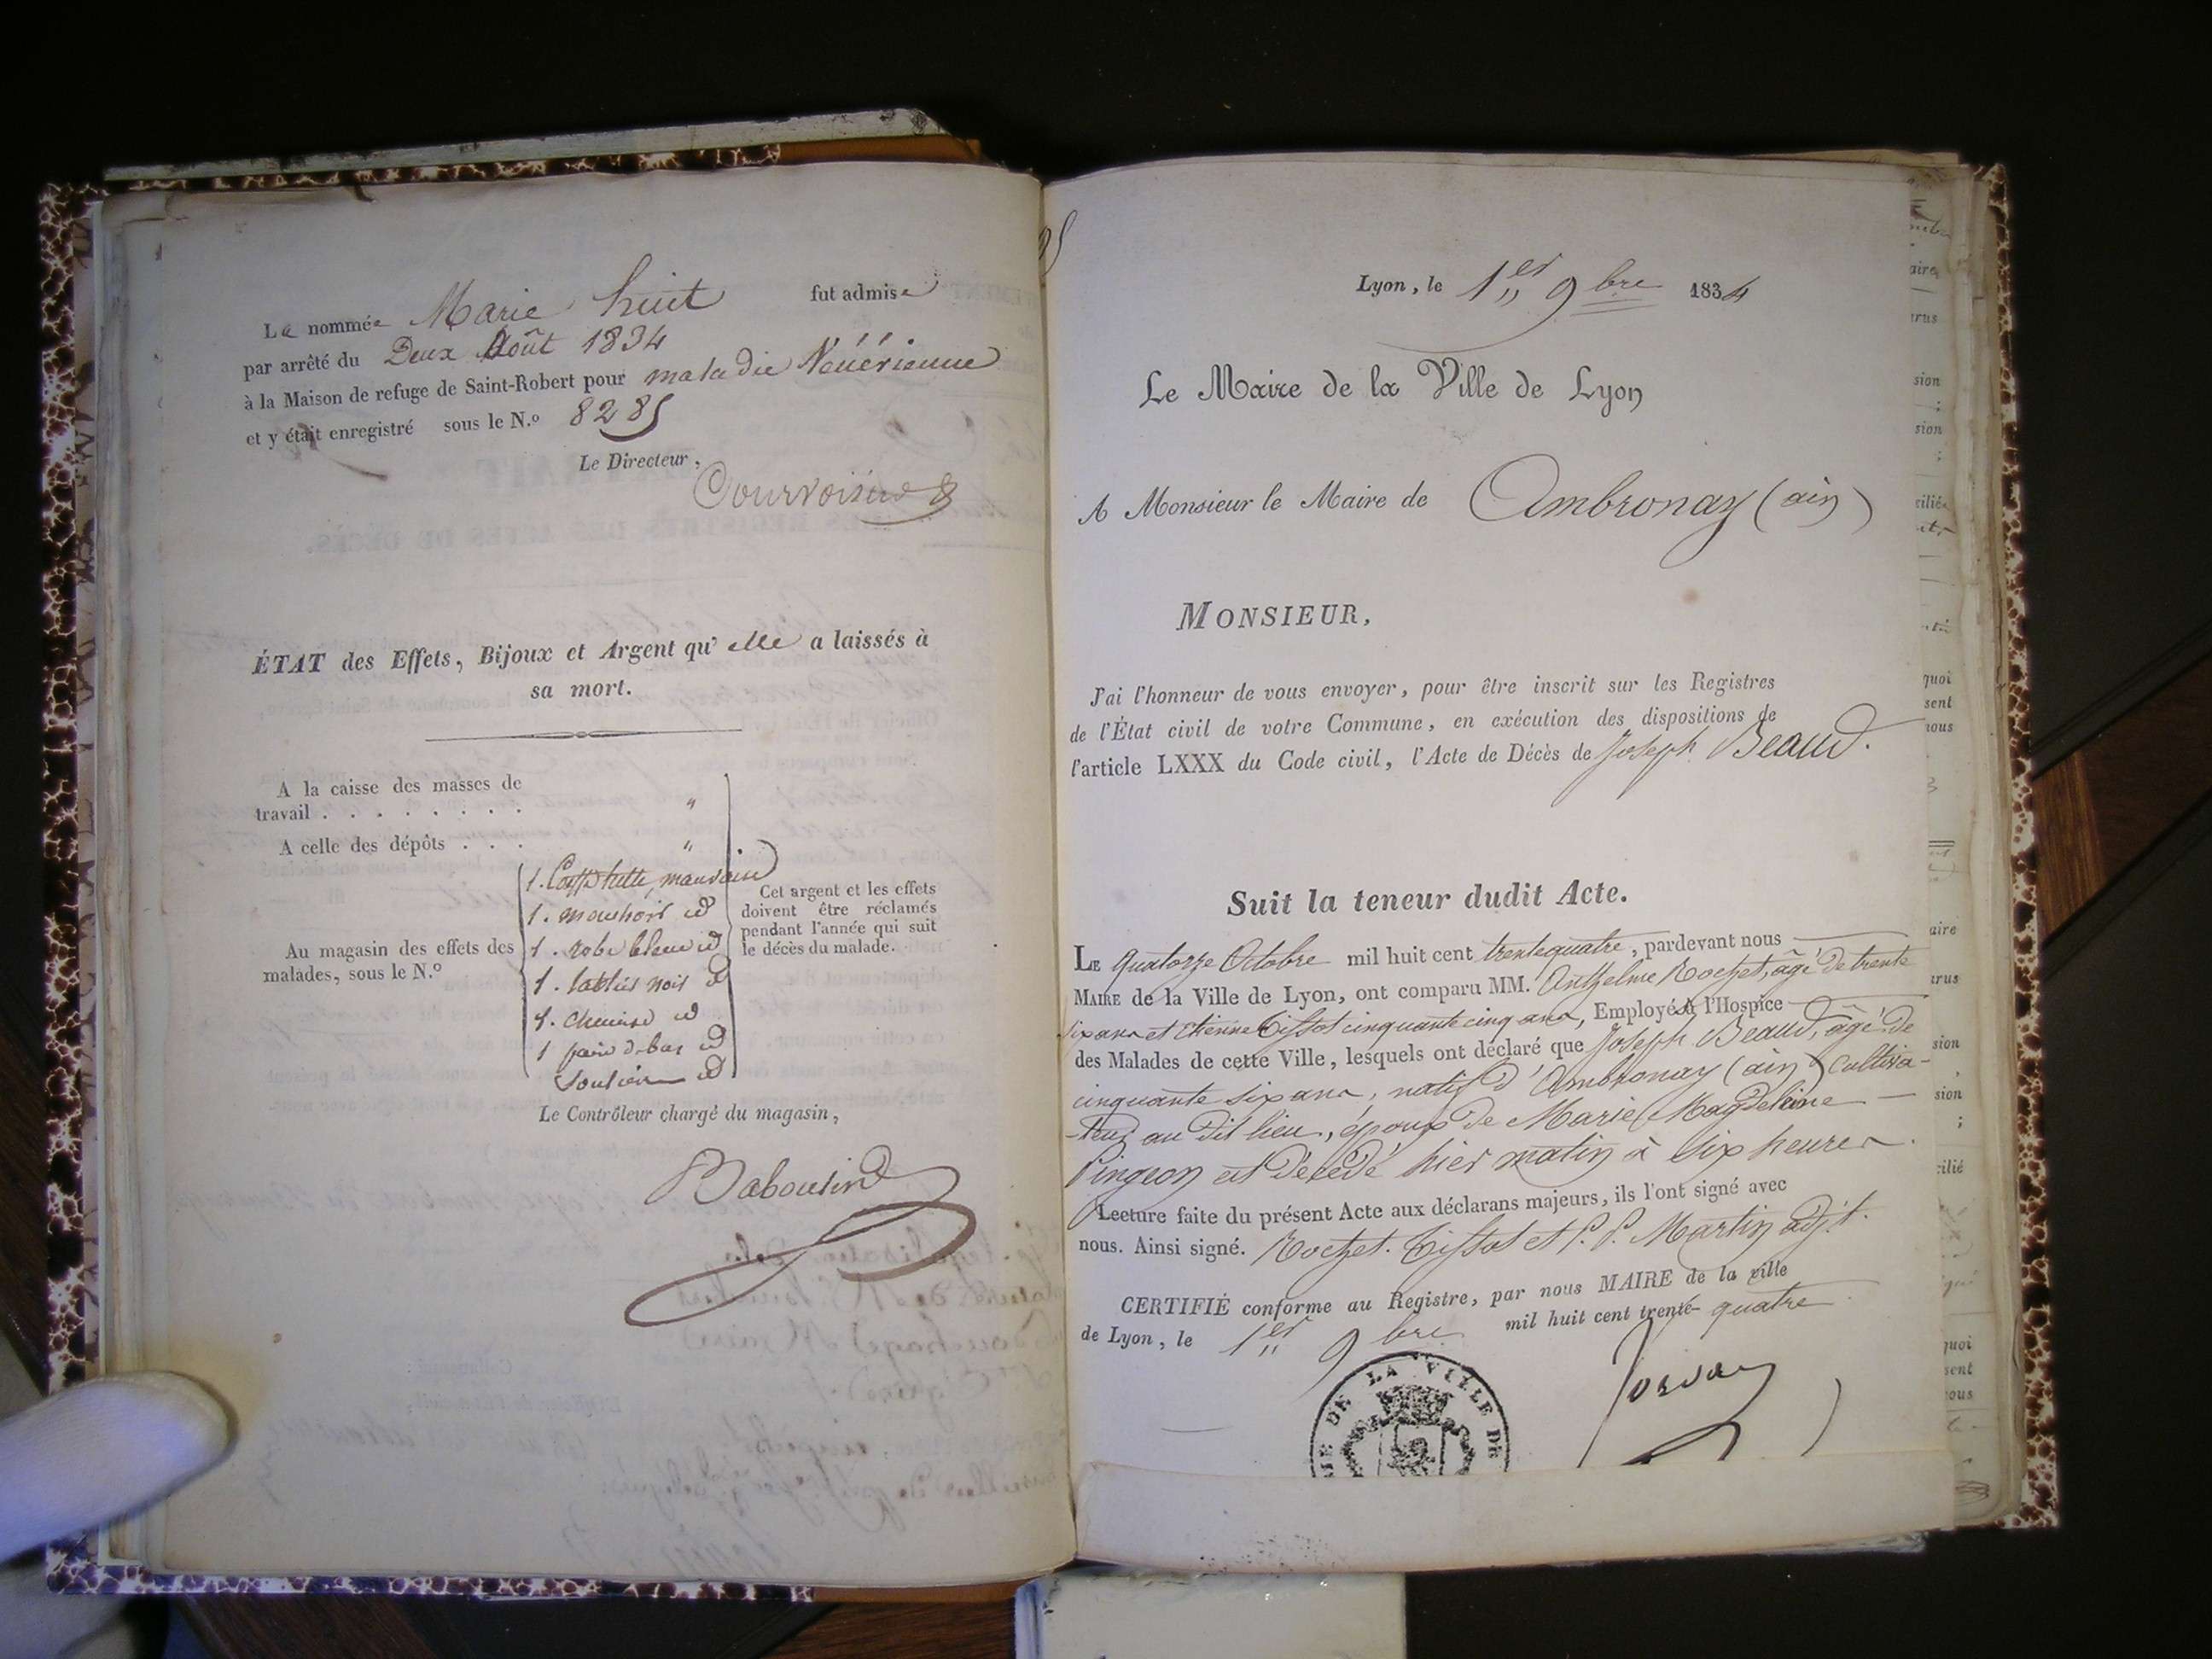 La nommée Marie huit fut admise
par arrêté du Deux Août 1834
à la Maison de refuge de Saint-Robert pour maladie Vénérienne
et y était enregistré sous le N.o 8285
Le Directeur,
ÉTAT des Effets, Bijoux et Argent qu'elle a laissés à
sa mort.
A la caisse des masses de
travail . . . . . . . . "
A celle des dépôts . . . "
Au magasin des effets des
malades, sous le N.o
1. mauvaise
1. mouchoir id
1. robe bleue id
1. tablier noir id
1. chemise id
1 paire de bas id
Souliers id
Cet argent et les effets
doivent être réclamés
pendant l'année qui suit
le décès du malade.
Le Contrôleur chargé du magasin,
Lyon, le 1er 9bre 1834
Le Maire de la Ville de Lyon
A Monsieur le Maire de Ambronay (ain)
MONSIEUR,
J'ai l'honneur de vous envoyer, pour être inscrit sur les Registres
de l'État civil de votre Commune, en exécution des dispositions de
l'article LXXX du Code civil, l'Acte de Décès de Joseph Beaud.
Suit la teneur dudit Acte.
LE quatorze Octobre mil huit cent trente quatre, pardevant nous
MAIRE de la Ville de Lyon, ont comparu MM. Anthelme Rochet, âgé de trente
six ans et Etienne Tissot cinquante cinq ans, Employés à l'Hospice
des Malades de cette Ville, lesquels ont déclaré que Joseph Beaud, âgé de
cinquante six ans, natif d'Ambronay (ain) cultiva-
-teur au dit lieu, époux de Marie Magdeleine
Pingeon est décédé hier matin à six heures.
Lecture faite du présent Acte aux déclarans majeurs, ils l'ont signé avec
nous. Ainsi signé. Rochet. Tissot et P. P. Martin adjt.
CERTIFIÉ conforme au Registre, par nous MAIRE de la ville
de Lyon, le 1er 9bre mil huit cent trente-quatre
DE LA VILLE DE